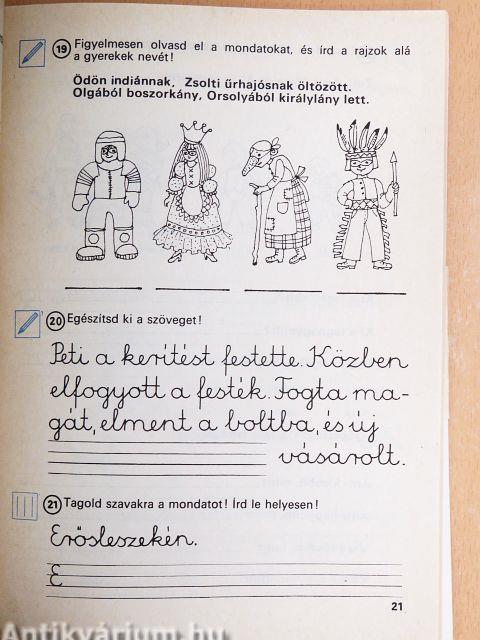 19 Figyelmesen olvasd el a mondatokat, és írd a rajzok alá
a gyerekek nevét!
Ödön indiánnak, Zsolti űrhajósnak öltözött.
Olgából boszorkány, Orsolyából királylány lett.
20 Egészítsd ki a szöveget!
Peti a kerítést festette. Közben
elfogyott a festék. Fogta ma-
gát, elment a boltba, és új
vásárolt.
21 Tagold szavakra a mondatot! Írd le helyesen!
Erősleszekén.
E
21
Antikvárium.hu